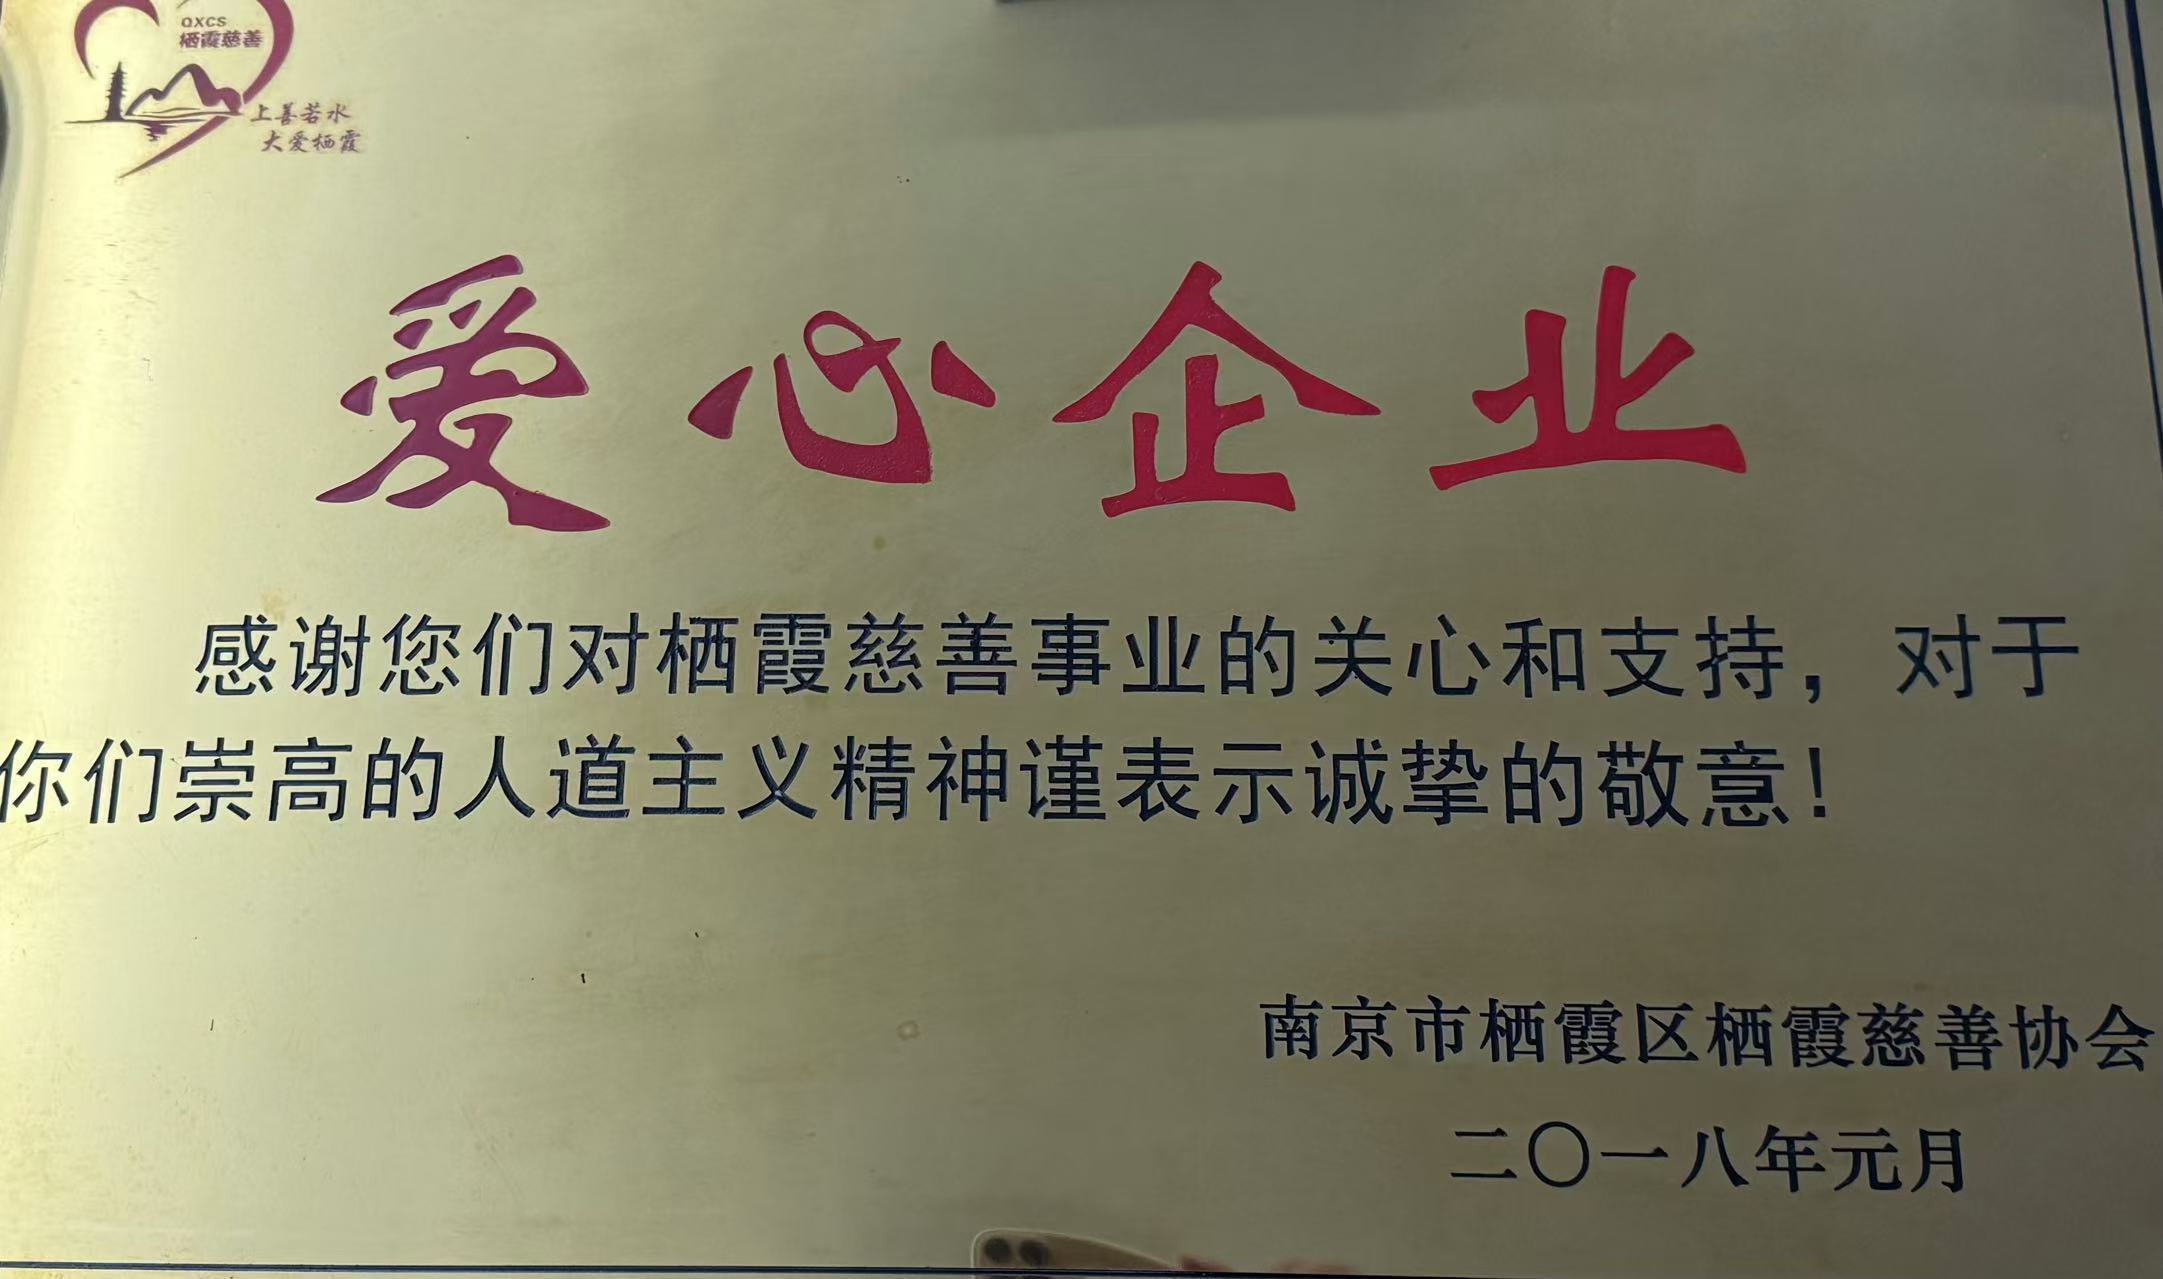 QXCS
栖霞慈善
上善若水
大爱栖霞
爱心企业
感谢您们对栖霞慈善事业的关心和支持，对于
你们崇高的人道主义精神谨表示诚挚的敬意！
南京市栖霞区栖霞慈善协会
二〇一八年元月